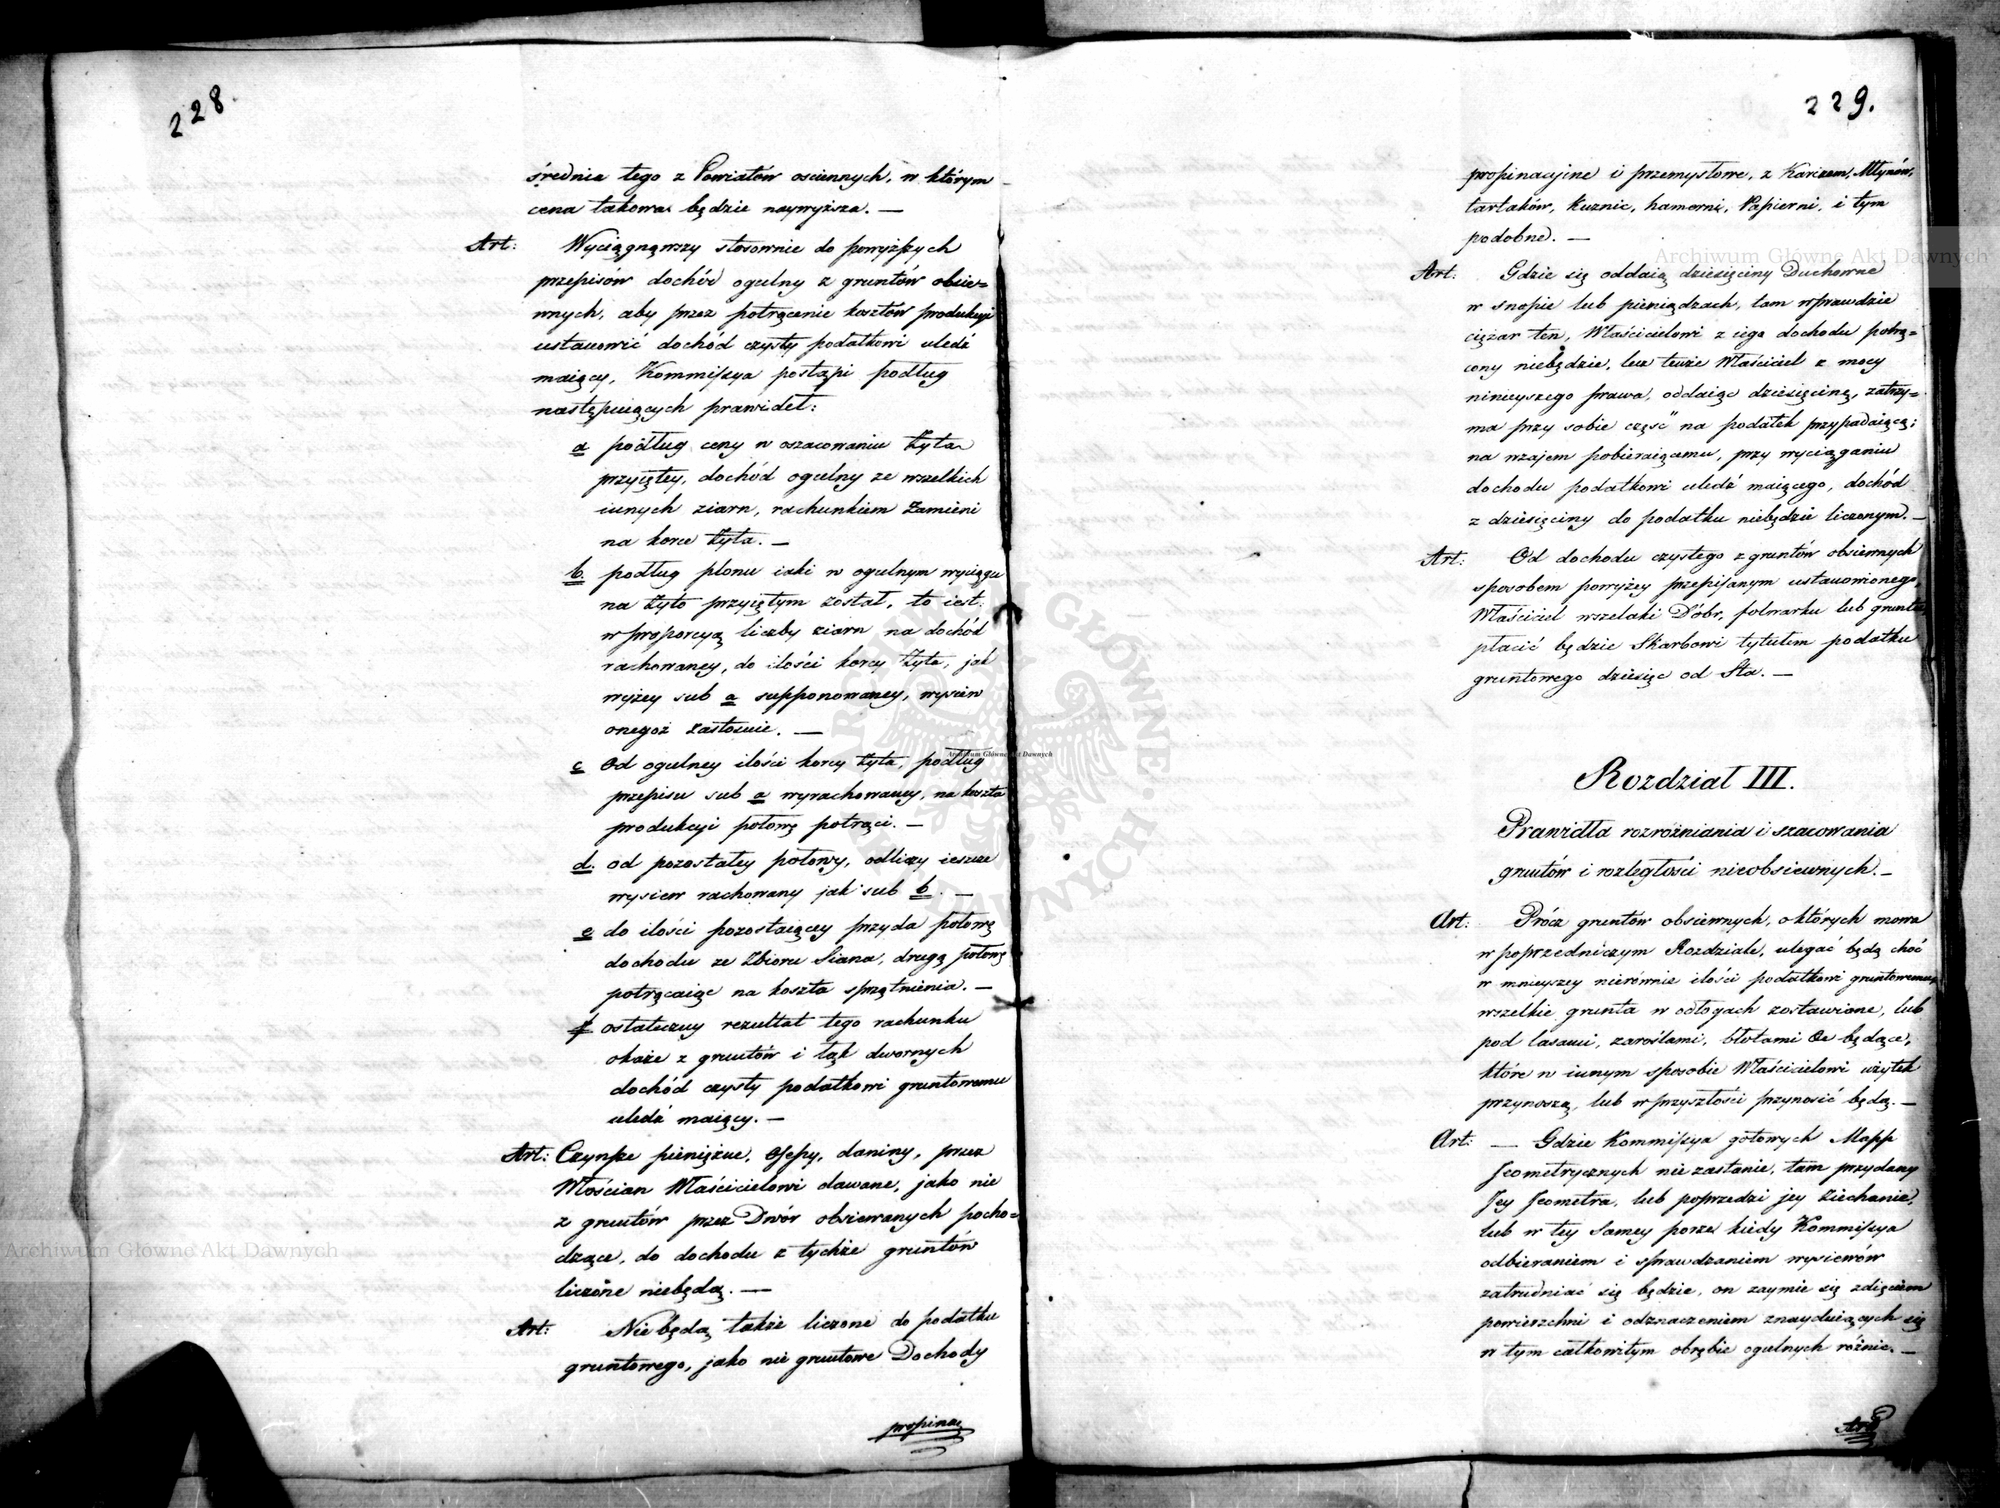 228.
średnia tego z Powiatów osciennych, w którym
cena takowa będzie naywyższa. —
Art: Wyciągnąwszy stosownie do powyższych
przepisów dochód ogulny z gruntów obsie=
wnych, aby przez potrącenie kosztów produkcyi
ustanowić dochód czysty podatkowi uledź
maiący, Kommissya postąpi podług
następuiących prawideł:
a podług ceny w oszacowaniu żyta
przyiętey, dochód ogulny ze wszelkich
innych ziarn, rachunkiem zamieni
na korce żyta. —
b. podług plonu iaki w ogulnym wyciągu
na żyto przyiętym został, to iest:
w proporcyą liczby ziarn na dochód
rachowaney, do ilości korcy żyta, jak
wyżey sub a supponowaney, wysiew
onegoż zastosuie. —
c Od ogulney ilości korcy żyta, podług
przepisu sub a wyrachowaney, na koszta
produkcyi połowę potrąci. —
d. od pozostałey połowy, odliczy ieszcze
wysiew rachowany jak sub b. —
e do ilości pozostaiącey przyda połowę
dochodu ze Zbioru Siana, drugą połowę
potrącaiąc na koszta sprzątnienia. —
f ostateczny rezultat tego rachunku
okaże z gruntów i łąk dwornych
dochód czysty podatkowi gruntowemu
uledź maiący. —
Art: Czynsze pieniężne, Osepy, daniny, przez
Włościan Właścicielowi dawane, jako nie
z gruntów przez Dwór obsiewanych pocho=
dzące, do dochodu z tychże gruntów
liczone niebędą. —
Art: Nie będą także liczone do podatku
gruntowego, jako nie gruntowe Dochody
propinac
229.
propinacyine i przemysłowe, z Karczem, Młynów,
tartaków, kuznic, hamerni, Papierni, i tym
podobne. —
Art: Gdzie się oddaią dziesięciny Duchowne
w snopie lub pieniądzach, tam wprawdzie
ciężar ten, Właścicielowi z iego dochodu potrą=
cony niebędzie, lecz tenże Właściciel z mocy
ninieyszego prawa, oddaiąc dziesięcinę, zatrzy=
ma przy sobie część na podatek przypadaiącą;
na wzajem pobieraiącemu, przy wyciąganiu
dochodu podatkowi uledź maiącego, dochód
z dziesięciny do podatku niebędzie liczonym. —
Art: Od dochodu czystego z gruntów obsiewnych
sposobem powyżey przepisanym ustanowionego,
Właściciel wszelaki Dóbr, folwarku lub gruntu
płacić będzie Skarbowi tytułem podatku
gruntowego dziesięć od Sta. —
Rozdział III.
Prawidła rozróżniania i szacowania
gruntów i rozległości nieobsiewnych. —
Art: Prócz gruntów obsiewnych, o których mowa
w poprzedniczym Rozdziale, ulegać będą choć
w mnieyszey nierównie ilości podatkowi gruntowemu,
wszelkie grunta w odłogach zostawione, lub
pod lasami, zaroślami, błotami &c będące,
które w innym sposobie Właścicielowi użytek
przynoszą, lub w przyszłości przynosić będą. —
Art: — Gdzie Kommissya gotowych Mapp
Jeometrycznych nie zastanie, tam przydany
Jey Jeometra, lub poprzedzi jey ziechanie,
lub w tey samey porze kiedy Kommissya
odbieraniem i sprawdzaniem wysiewów
zatrudniać się będzie, on zaymie się zdięciem
powierzchni i odznaczeniem znayduiących się
w tym całkowitym obrębie ogulnych różnic. —
Art
Archiwum Główne Akt Dawnych
Archiwum Główne Akt Dawnych
Archiwum Główne Akt Dawnych
Archiwum Główne Akt Dawnych